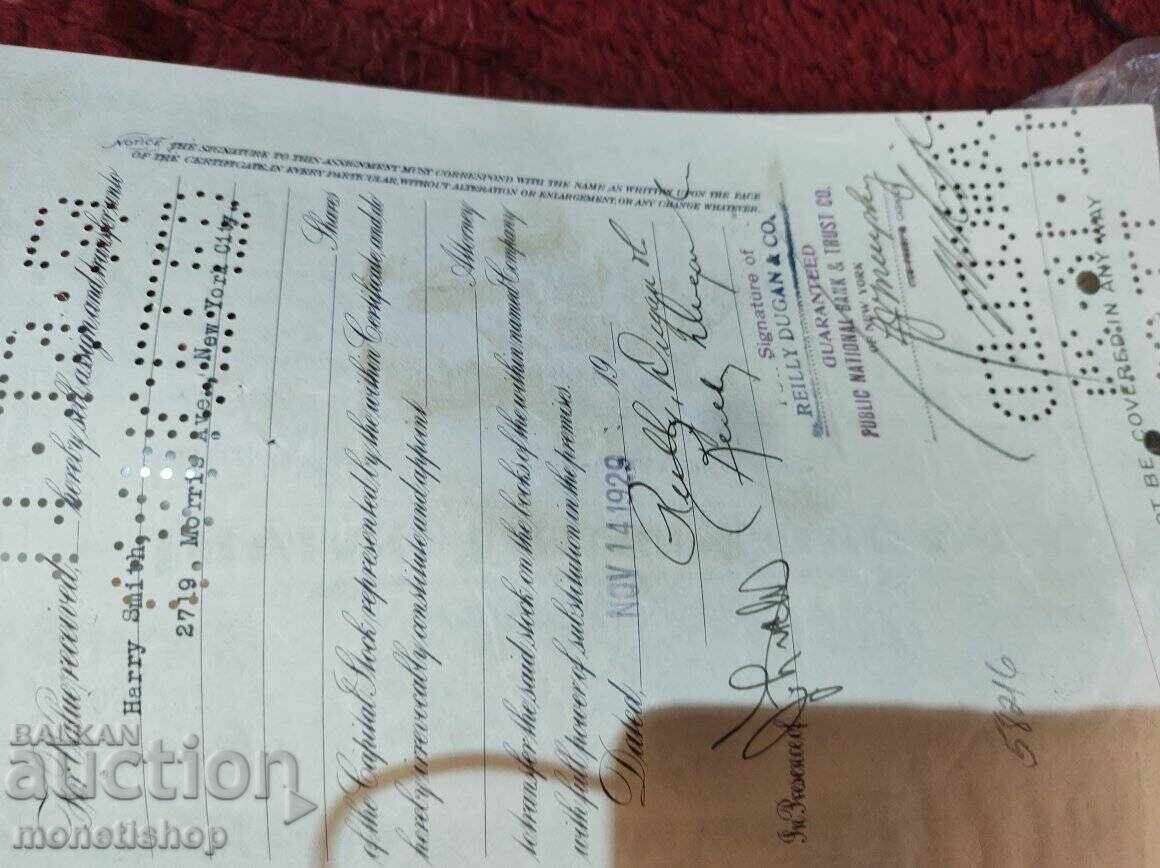 For Value received, hereby sell, assign and transfer unto
Harry Smith,
2719 Morris Ave., New York City.
Shares
of the Capital Stock represented by the within Certificate, and do
hereby irrevocably constitute and appoint
Attorney
to transfer the said stock on the books of the within named Company
with full power of substitution in the premises.
Dated, NOV 14 1929 19
Reilly, Dugan & Co
In Presence of
NOTICE THE SIGNATURE TO THIS ASSIGNMENT MUST CORRESPOND WITH THE NAME AS WRITTEN UPON THE FACE
OF THE CERTIFICATE, IN EVERY PARTICULAR, WITHOUT ALTERATION OR ENLARGEMENT, OR ANY CHANGE WHATEVER.
Signature of
REILLY DUGAN & CO.
GUARANTEED
PUBLIC NATIONAL BANK & TRUST CO.
OF NEW YORK
58216
OT BE COVERED IN ANY WAY
BALKAN
auction
monetishop